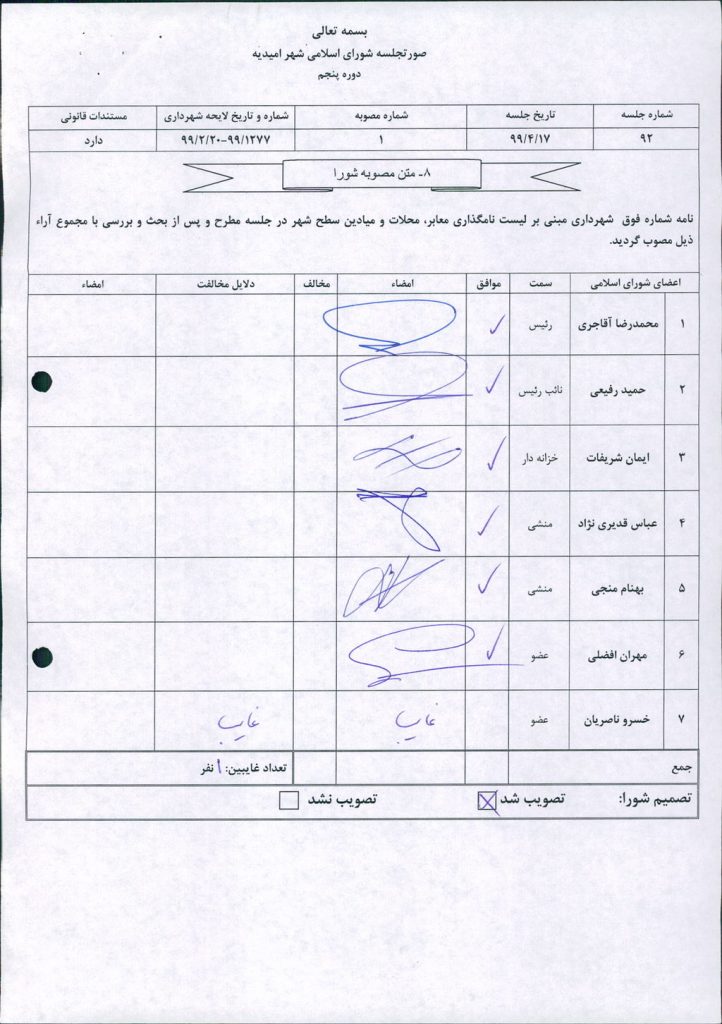 بسمه تعالی
صورتجلسه شورای اسلامی شهر امیدیه
دوره پنجم
شماره جلسه تاریخ جلسه شماره مصوبه شماره و تاریخ لایحه شهرداری مستندات قانونی
۹۲ ۹۹/۴/۱۷ ۱ ۹۹/۲/۲۰-۹۹/۱۲۷۷ دارد
۸- متن مصوبه شورا
نامه شماره فوق شهرداری مبنی بر لیست نامگذاری معابر، محلات و میادین سطح شهر در جلسه مطرح و پس از بحث و بررسی با مجموع آراء
ذیل مصوب گردید.
اعضای شورای اسلامی سمت موافق امضاء مخالف دلایل مخالفت امضاء
۱ محمدرضا آقاجری رئیس
۲ حمید رفیعی نائب رئیس
۳ ایمان شریفات خزانه دار
۴ عباس قدیری نژاد منشی
۵ بهنام منجی منشی
۶ مهران افضلی عضو
۷ خسرو ناصریان عضو غایب غایب
جمع تعداد غایبین: ۱ نفر
تصمیم شورا: تصویب شد تصویب نشد